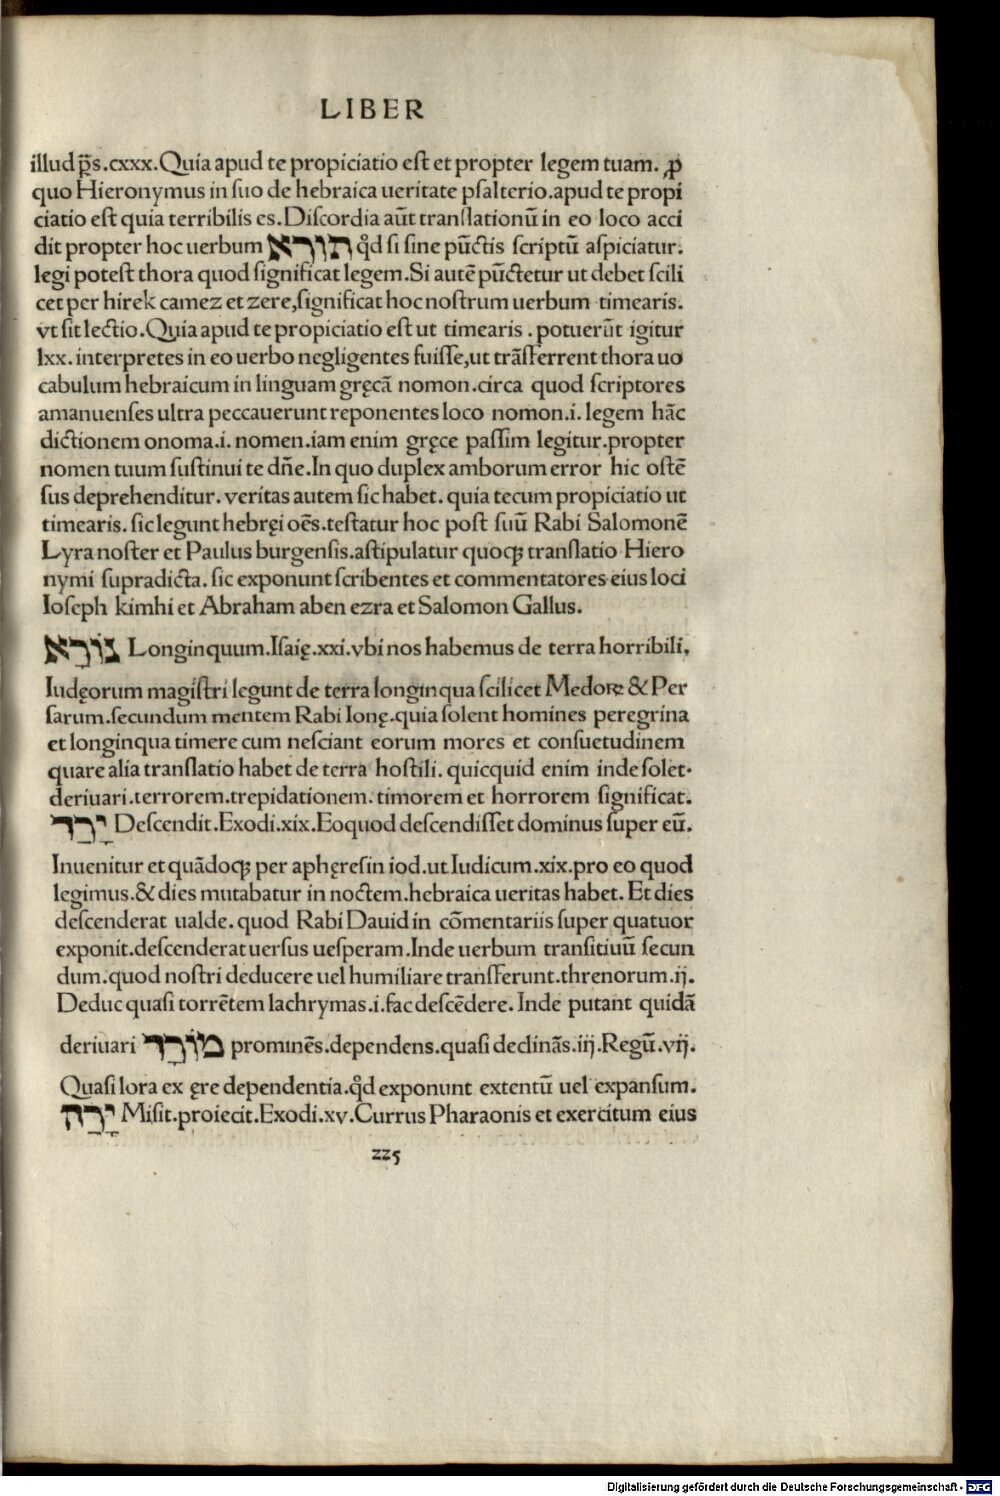 LIBER
illud p̄s.cxxx.Quia apud te propiciatio est et propter legem tuam. ꝓ
quo Hieronymus in suo de hebraica ueritate psalterio.apud te propi
ciatio est quia terribilis es.Discordia aūt translationū in eo loco acci
dit propter hoc uerbum תורא qd̄ si sine pūctis scriptū aspiciatur.
legi potest thora quod significat legem.Si autē pūctetur ut debet scili
cet per hirek camez et zere,significat hoc nostrum uerbum timearis.
vt sit lectio.Quia apud te propiciatio est ut timearis.potuerūt igitur
lxx.interpretes in eo uerbo negligentes fuisse,ut trāsferrent thora uo
cabulum hebraicum in linguam gręcā nomon.circa quod scriptores
amanuenses ultra peccauerunt reponentes loco nomon.i.legem hāc
dictionem onoma.i.nomen.iam enim gręce passim legitur.propter
nomen tuum sustinui te dn̄e.In quo duplex amborum error hic ostē
sus deprehenditur.veritas autem sic habet.quia tecum propiciatio ut
timearis.sic legunt hebręi oēs.testatur hoc post suū Rabi Salomonē
Lyra noster et Paulus burgensis.astipulatur quoqꝫ translatio Hiero
nymi supradicta.sic exponunt scribentes et commentatores eius loci
Ioseph kimhi et Abraham aben ezra et Salomon Gallus.
נוֹרָא Longinquum.Isaię.xxi.vbi nos habemus de terra horribili,
Iudęorum magistri legunt de terra longinqua scilicet Medoꝝ & Per
sarum.secundum mentem Rabi Ionę.quia solent homines peregrina
et longinqua timere cum nesciant eorum mores et consuetudinem
quare alia translatio habet de terra hostili.quicquid enim inde solet.
deriuari.terrorem.trepidationem.timorem et horrorem significat.
יָרַד Descendit.Exodi.xix.Eoquod descendisset dominus super eū.
Inuenitur et quādoqꝫ per aphęresin iod.ut Iudicum.xix.pro eo quod
legimus.& dies mutabatur in noctem.hebraica ueritas habet.Et dies
descenderat ualde.quod Rabi Dauid in cōmentariis super quatuor
exponit.descenderat uersus uesperam.Inde uerbum transitiuū secun
dum.quod nostri deducere uel humiliare transferunt.threnorum.ij.
Deduc quasi torrētem lachrymas.i.fac descēdere.Inde putant quidā
deriuari מוֹרָד prominēs.dependens.quasi declinās.iij.Regū.vij.
Quasi lora ex ęre dependentia.qd̄ exponunt extentū uel expansum.
יָרָה Misit.proiecit.Exodi.xv.Currus Pharaonis et exercitum eius
225
Digitalisierung gefördert durch die Deutsche Forschungsgemeinschaft - DFG